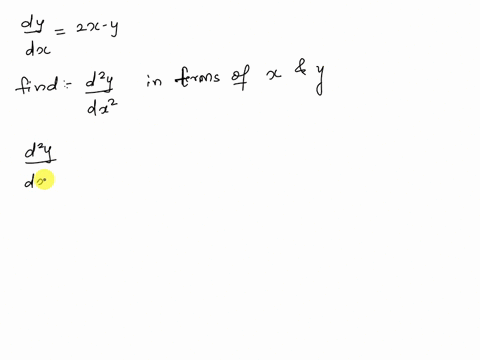 dy/dx = 2x-y
find:- d²y/dx² in terms of x & y
d²y/dx